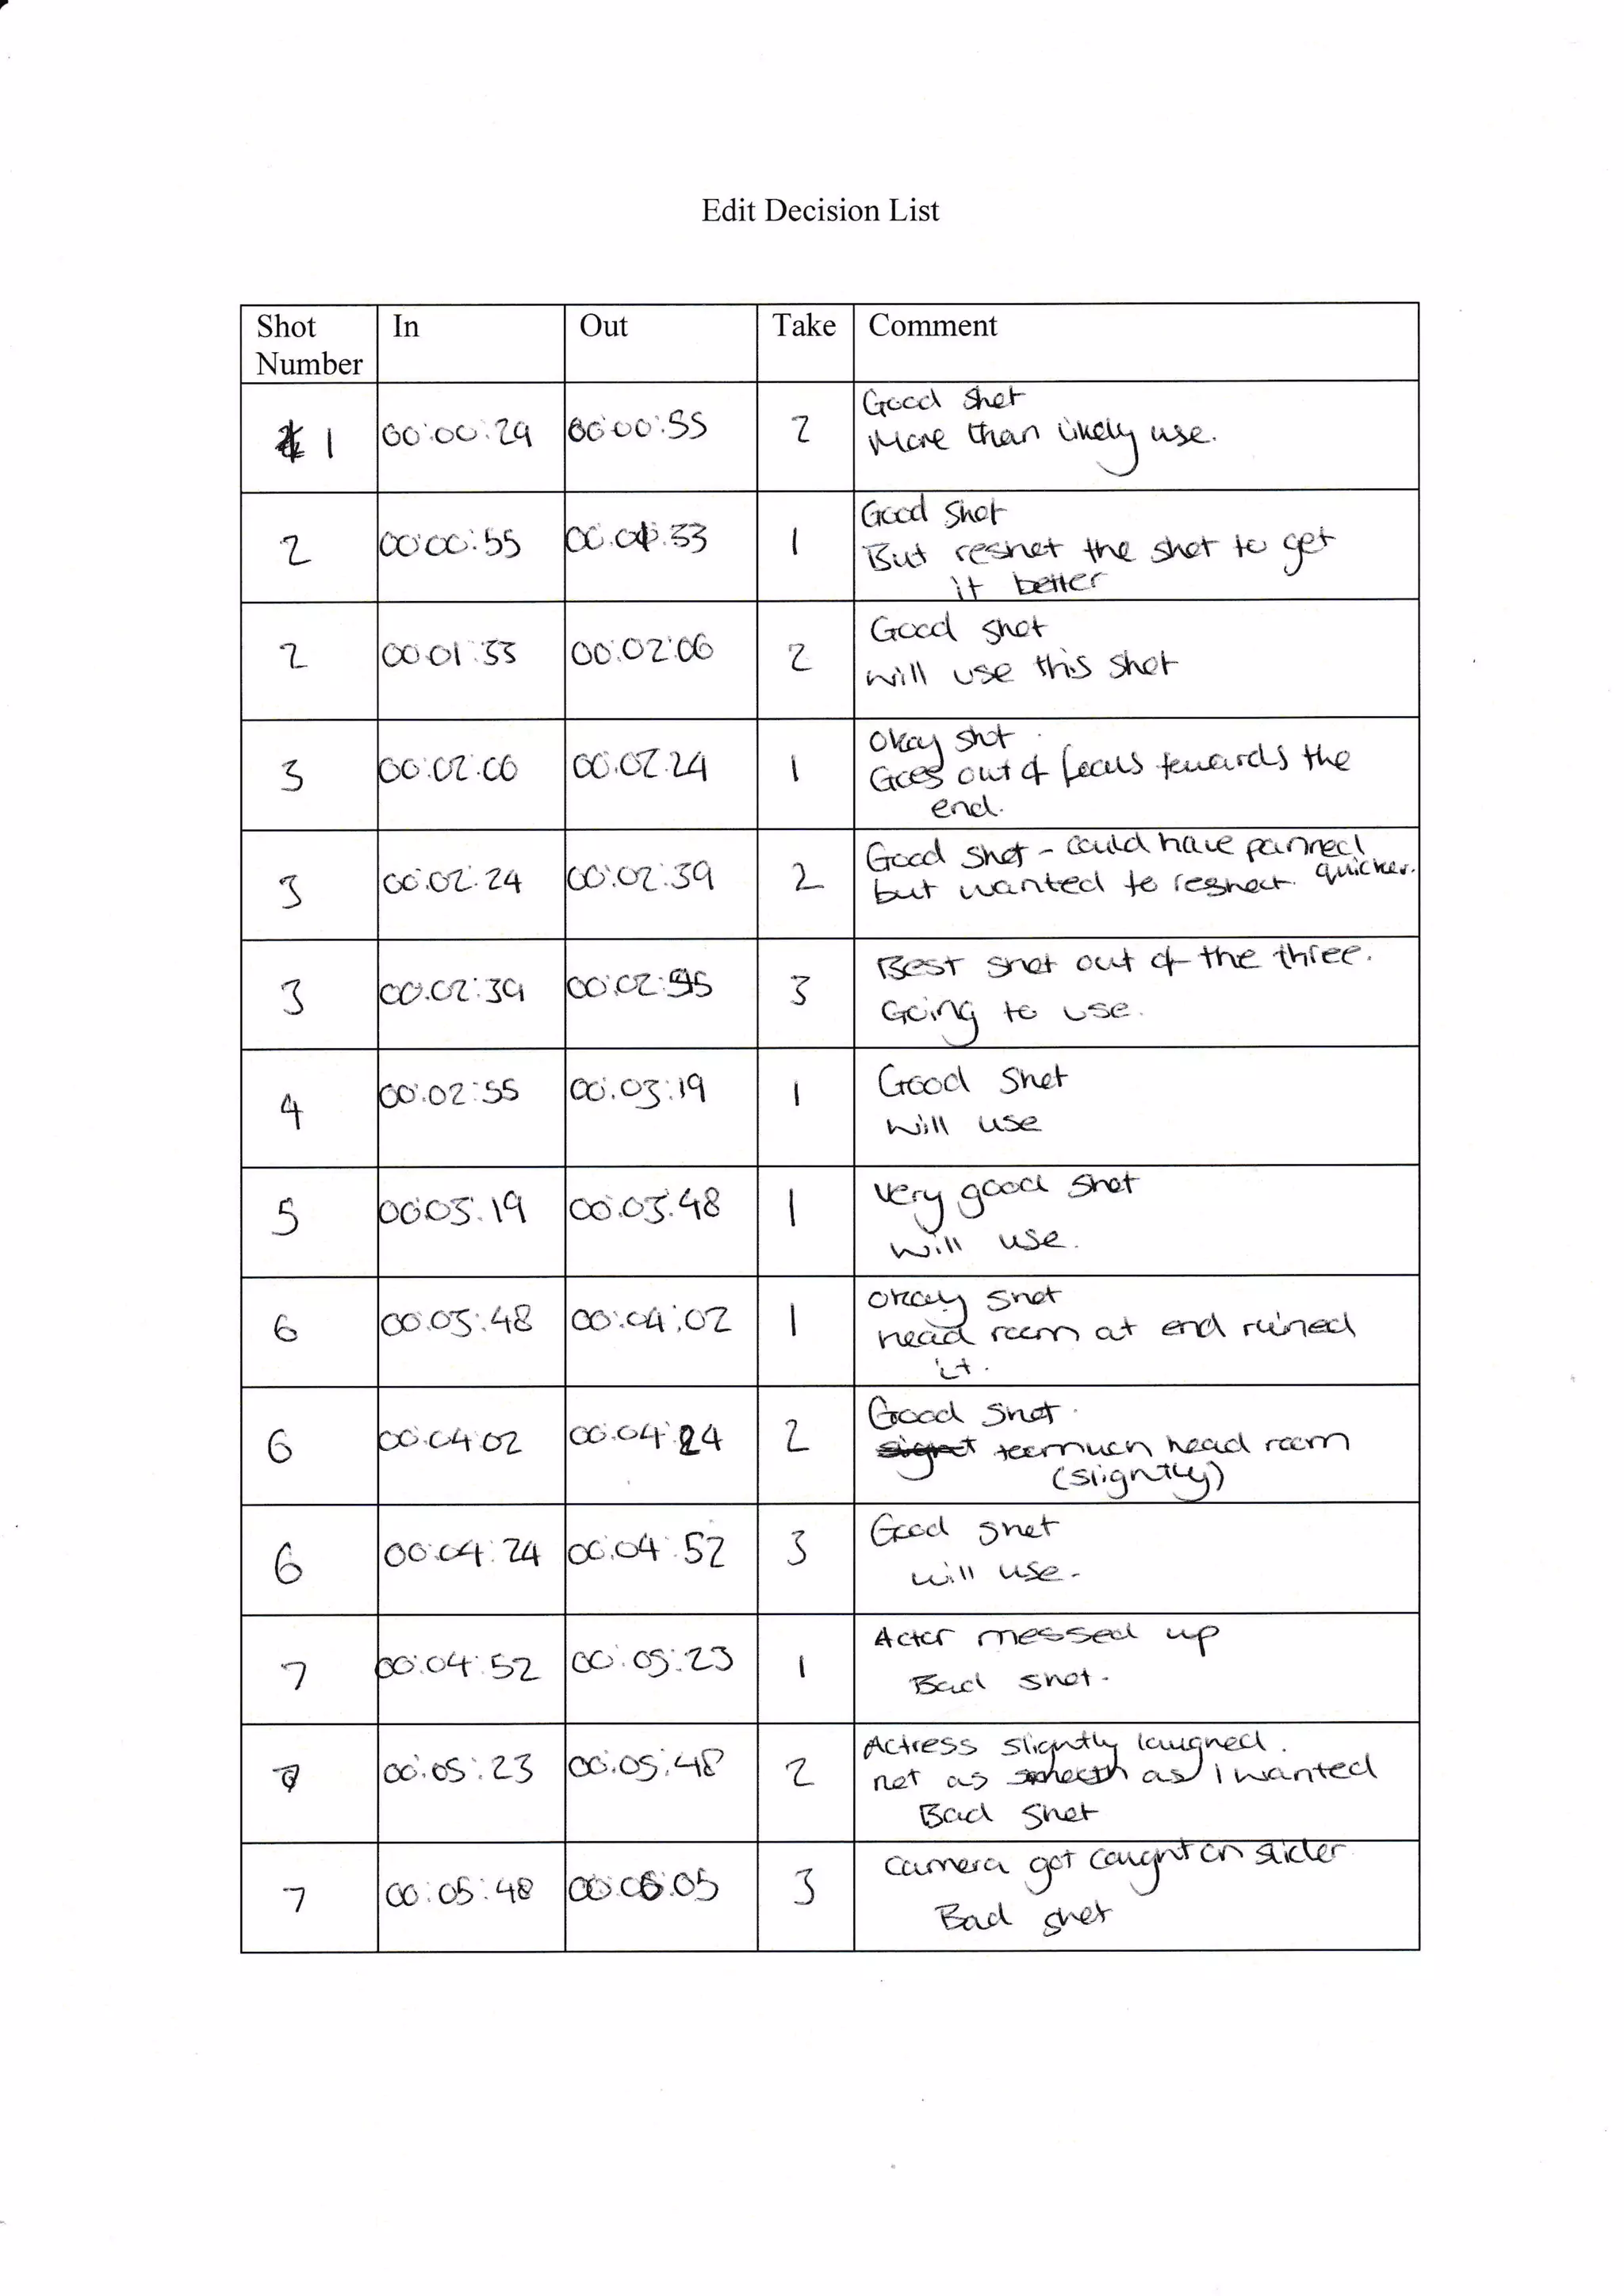 Edit Decision List
Shot Number In Out Take Comment
1 00:00:29 00:00:55 2 Good shot
More than likely use.
2 00:00:55 00:01:33 1 Good shot
But reshot the shot to get
it better
2 00:01:33 00:02:06 2 Good shot
will use this shot
3 00:02:06 00:02:24 1 Okay shot
Goes out of focus towards the
end.
3 00:02:24 00:02:39 2 Good shot - could have panned quicker.
but wanted to reshoot.
3 00:02:39 00:02:55 3 Best shot out of the three.
Going to use.
4 00:02:55 00:03:19 1 Good Shot
will use
5 00:03:19 00:03:48 1 Very good shot
will use.
6 00:03:48 00:04:02 1 okay shot
head room at end ruined
it.
6 00:04:02 00:04:24 2 Good shot.
toomuch head room
(slightly)
6 00:04:24 00:04:52 3 Good shot
will use.
7 00:04:52 00:05:23 1 Actor messed up
Bad shot.
7 00:05:23 00:05:48 2 Actress slightly laughed.
not as smooth as i wanted
Bad Shot
7 00:05:48 00:06:05 3 Camera got caught on slider
Bad shot